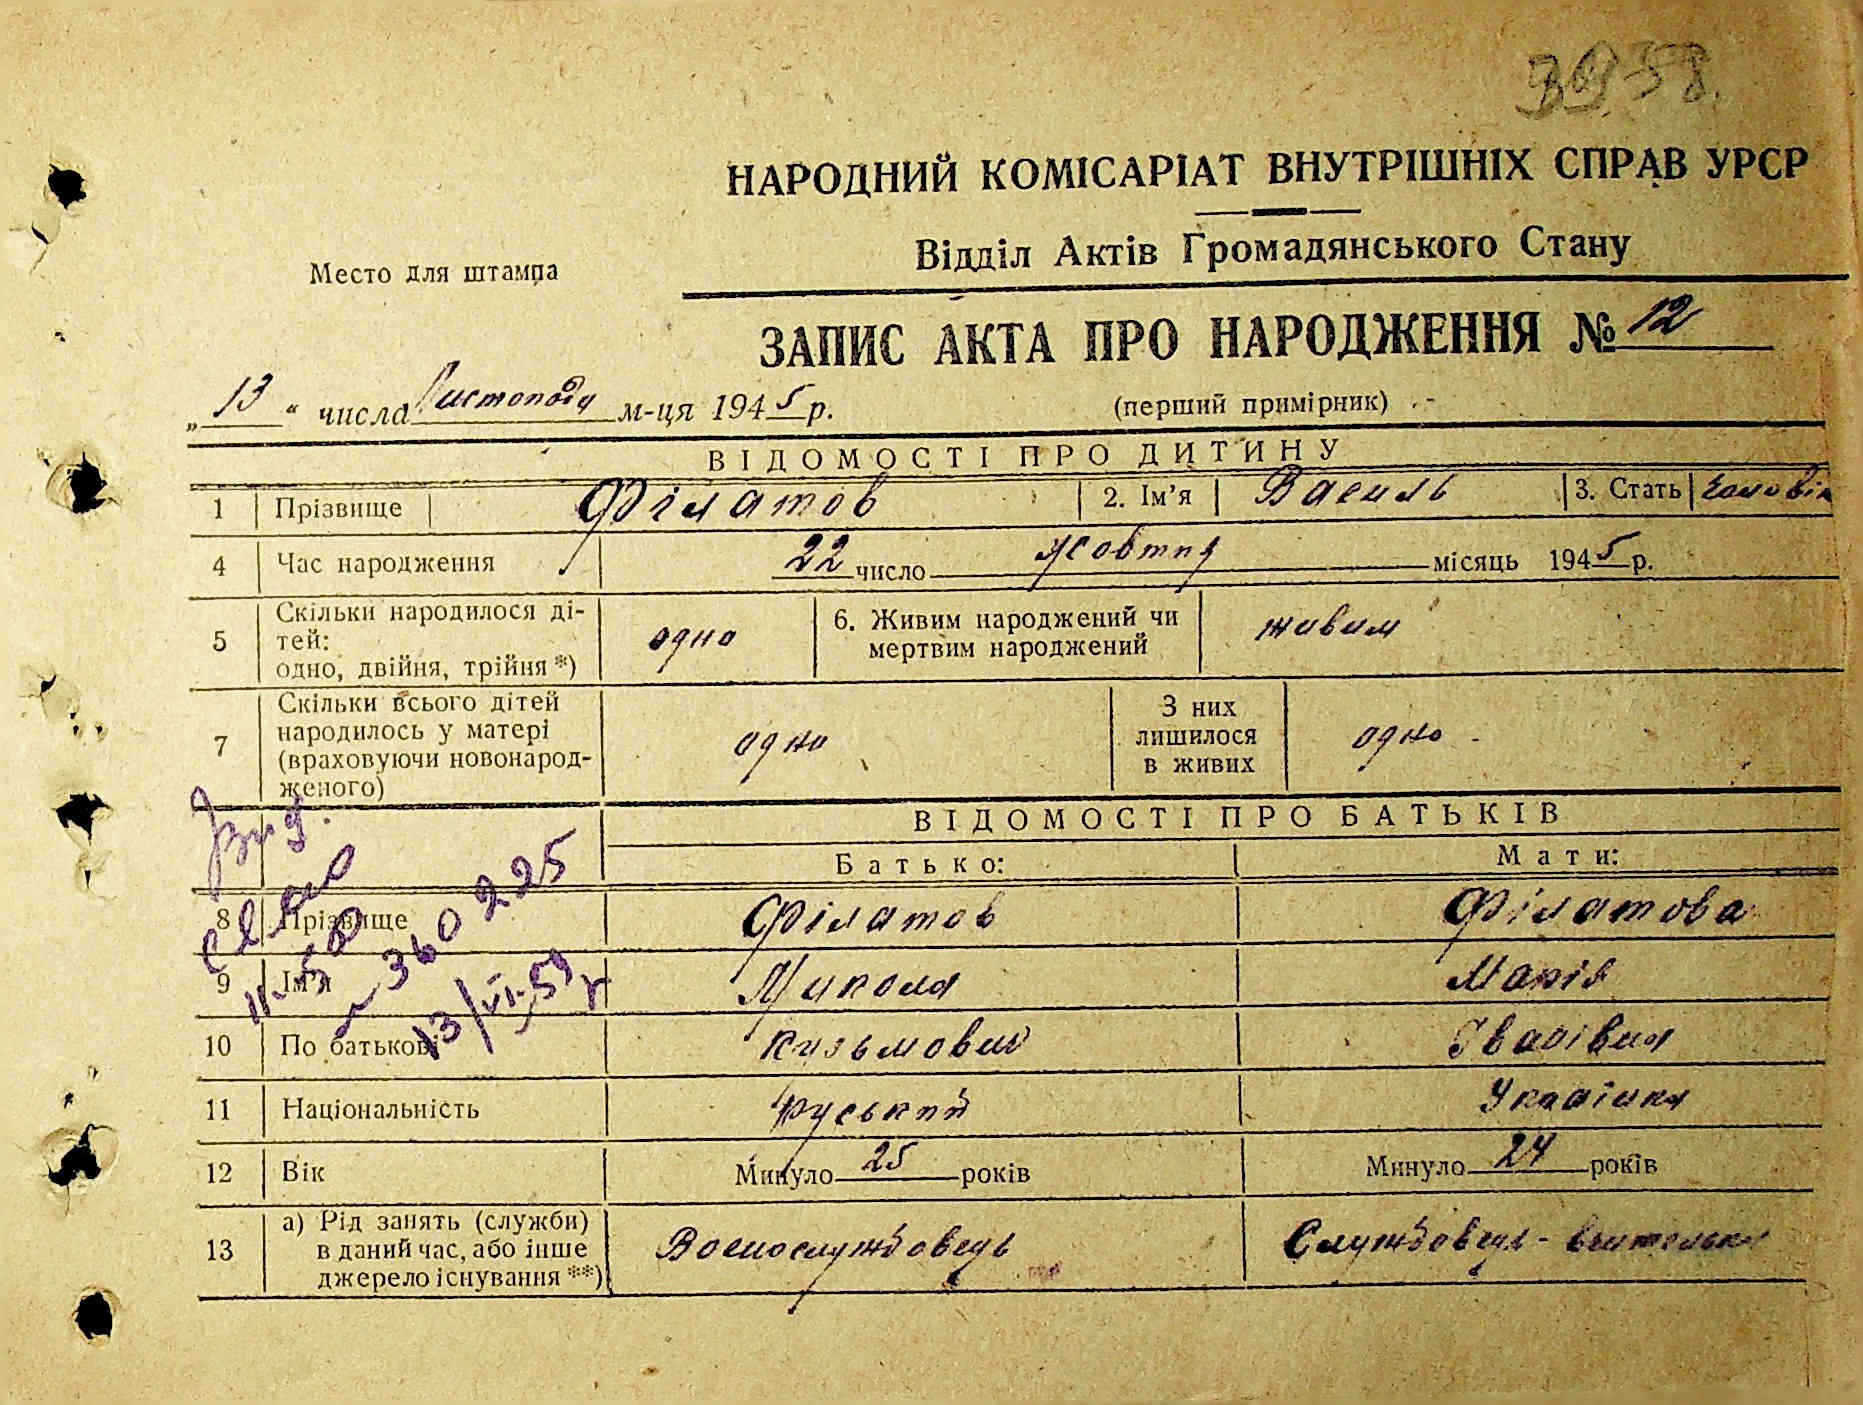 58.
НАРОДНИЙ КОМІСАРІАТ ВНУТРІШНІХ СПРАВ УРСР
Відділ Актів Громадянського Стану
Место для штампа
ЗАПИС АКТА ПРО НАРОДЖЕННЯ № 12
„ 13 “ числа Листопада м-ця 1945 р.
(перший примірник)
ВІДОМОСТІ ПРО ДИТИНУ
1 Прізвище Філатов 2. Ім'я Василь 3. Стать
4 Час народження 22 число жовтня місяць 1945 р.
5 Скільки народилося ді-
тей:
одно, двійня, трійня *)
одно
6. Живим народжений чи
мертвим народжений
живим
7 Скільки всього дітей
народилось у матері
(враховуючи новонарод-
женого)
одно
З них
лишилося
в живих
одно
ВІДОМОСТІ ПРО БАТЬКІВ
Батько: Мати:
8 Прізвище Філатов Філатова
9 Ім'я Микола Марія
10 По батькові Кузьмович Іванівна
11 Національність руський Українка
12 Вік Минуло 25 років Минуло 24 років
13 а) Рід занять (служби)
в даний час, або інше
джерело існування **)
Воєнослужбовець Службовець - вчителька
360225
13/VI-59 г